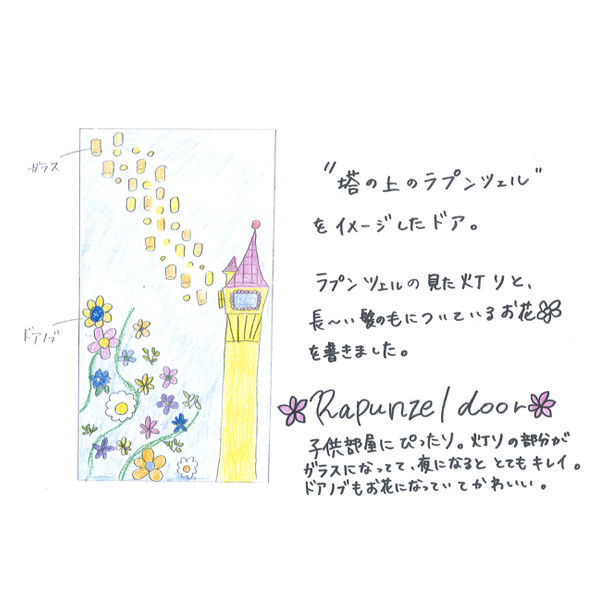 ガラス
ドアノブ
"塔の上のラプンツェル"
をイメージしたドア。
ラプンツェルの見た灯りと、
長〜い髪のもについているお花
を書きました。
Rapunzel door
子供部屋にぴったり。灯りの部分が
ガラスになってて、夜になるととてもキレイ。
ドアノブもお花になっていてかわいい。